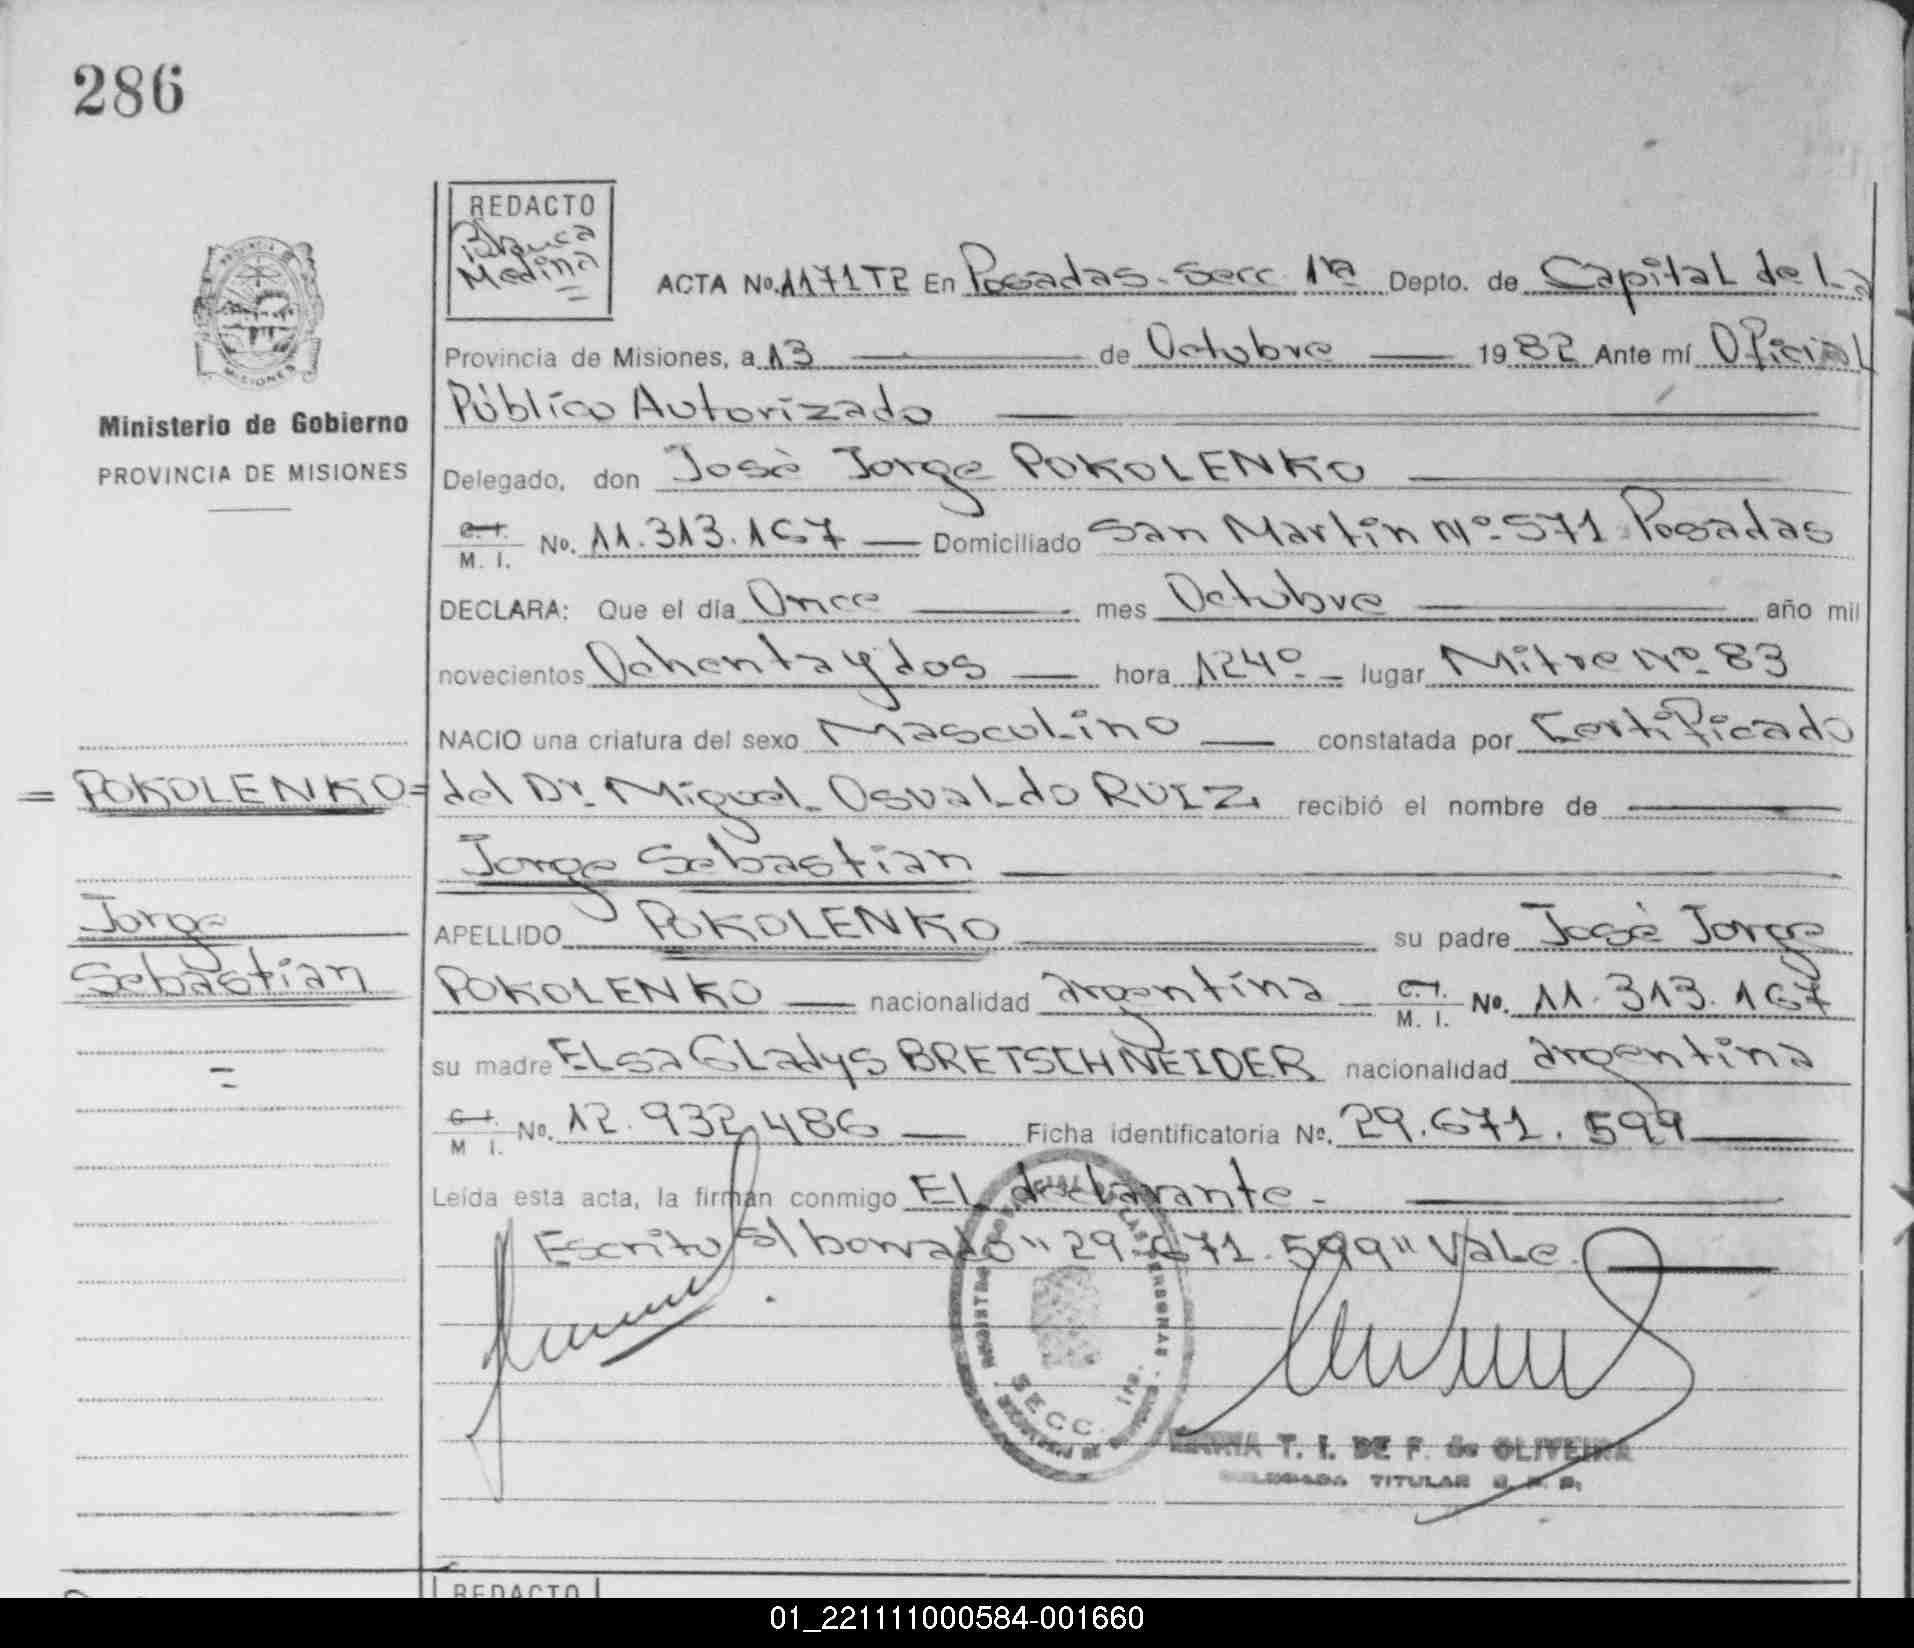 286
REDACTO
Blanca
Medina
ACTA No. 1171T2 En Posadas - Secc 1ra Depto. de Capital de la
Provincia de Misiones, a 13 de Octubre 1982 Ante mí Oficial
Público Autorizado
Ministerio de Gobierno
PROVINCIA DE MISIONES
Delegado, don José Jorge POKOLENKO
C. I.
M. I. No. 11.313.167 Domiciliado San Martin Nº 571 Posadas
DECLARA: Que el día Once mes Octubre año mil
novecientos Ochenta y dos hora 124º lugar Mitre Nº 83
NACIO una criatura del sexo Masculino constatada por Certificado
= POKOLENKO =
del Dr. Miguel Osvaldo RUIZ recibió el nombre de
Jorge Sebastian
Jorge
Sebastian
=
APELLIDO POKOLENKO su padre José Jorge
POKOLENKO nacionalidad argentina C. I. M. I. No. 11.313.167
su madre Elsa Gladys BRETSCHNEIDER nacionalidad argentina
C. I.
M I. No. 12.932.486 Ficha identificatoria No. 29.671.599
Leída esta acta, la firman conmigo El declarante -
Escrito s/ borrado "29.671.599" Vale.
SECC. 1ra.
T. I. DE F. de OLIVEIRA
TITULAR
REDACTO
01_221111000584-001660